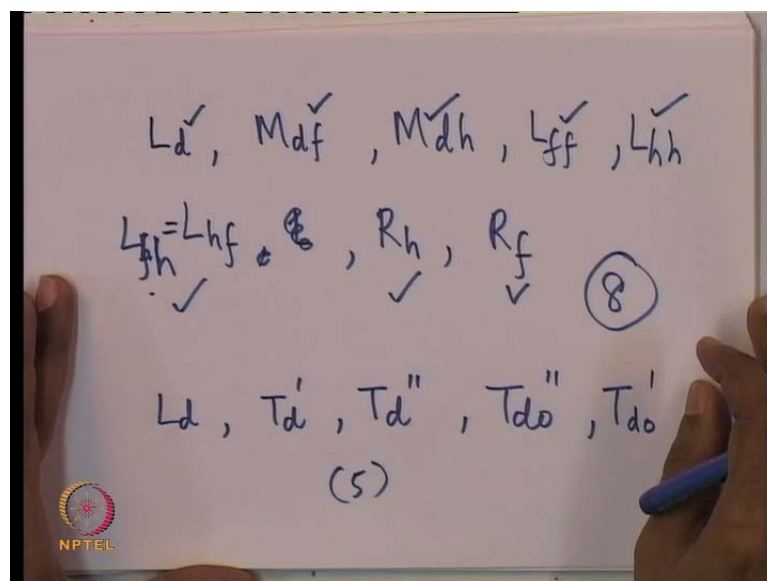 Ld✓, Mdf✓, Mdh✓, Lff✓, Lhh✓
Lfh=Lhf✓, Rh✓, Rf✓ (8)
Ld, Td', Td'', Tdo'', Tdo'
(5)
NPTEL